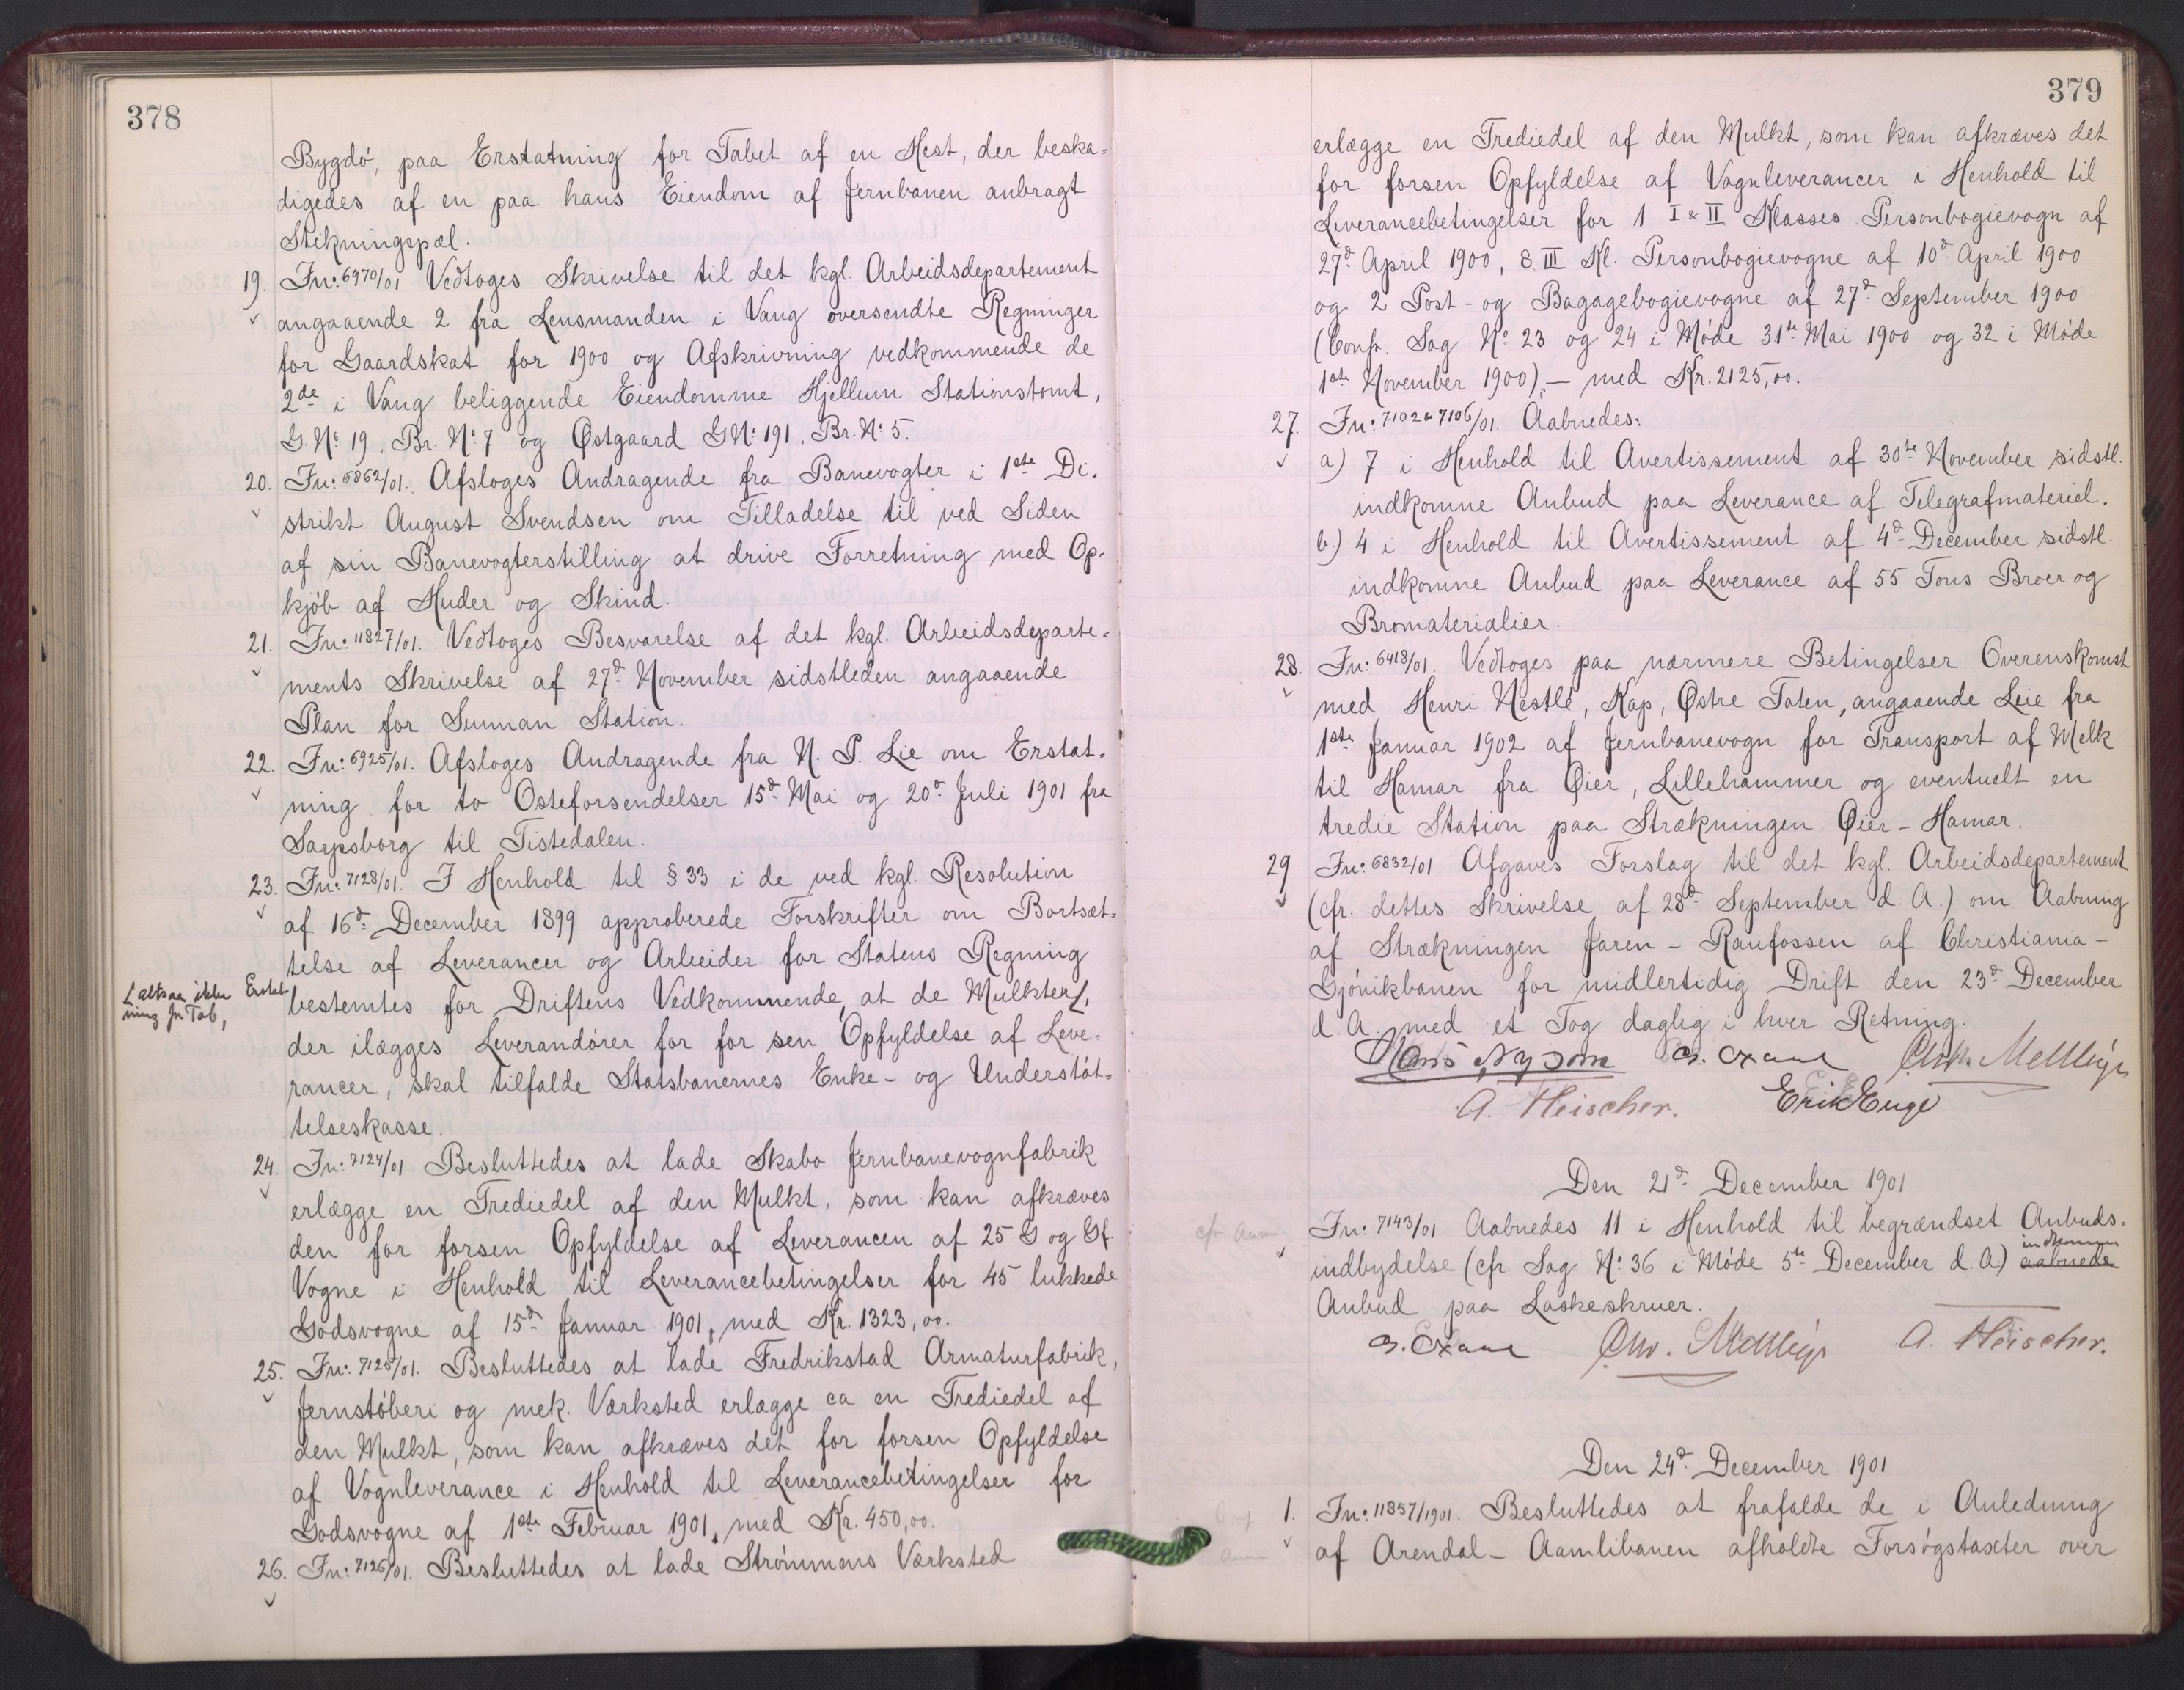 378
Bygdö, paa Erstatning for Tabet af en Hest, der beska-
digedes af en paa hans Eiendom af Jernbanen anbragt
Stikningspæl.
19. Jn: 6970/01 Vedtoges Skrivelse til det kgl. Arbeidsdepartement
angaaende 2 fra Lensmanden i Vang oversendte Regninger
for Gaardskat for 1900 og Afskrivning vedkommende de
2de i Vang beliggende Eiendomme Hjellum Stationstomt,
G. No 19, Br. No 7 og Østgaard G No 191, Br. No 5.
20. Jn: 6862/01. Afsloges Andragende fra Banevogter i 1ste Di-
strikt August Svendsen om Tilladelse til ved Siden
af sin Banevogterstilling at drive Forretning med Op-
kjöb af Huder og Skind.
21. Jn: 11827/01. Vedtoges Besvarelse af det kgl. Arbeidsdeparte-
ments Skrivelse af 27d November sidstleden angaaende
Plan for Sunnan Station.
22. Jn: 6925/01. Afsloges Andragende fra N. P. Lie om Erstat-
ning for to Osteforsendelser 15d Mai og 20d Juli 1901 fra
Sarpsborg til Tistedalen.
23. Jn: 7128/01. I Henhold til § 33 i de ved kgl. Resolution
af 16d December 1899 approberede Forskrifter om Bortsæt-
telse af Leverancer og Arbeider for Statens Regning
bestemtes for Driftens Vedkommende, at de Mulkter,
⌊altsaa ikke Erstat
ning for Tab,
der ilægges Leverandörer for for sen Opfyldelse af Leve-
rancer, skal tilfalde Statsbanernes Enke- og Understöt-
telseskasse.
24. Jn: 7124/01 Besluttedes at lade Skabo Jernbanevognfabrik
erlægge en Trediedel af den Mulkt, som kan afkræves
den for forsen Opfyldelse af Leverancen af 25 G og Gf.
Vogne i Henhold til Leverancebetingelser for 45 lukkede
Godsvogne af 15d Januar 1901, med Kr. 1323,00.
25. Jn: 7125/01. Besluttedes at lade Fredrikstad Armaturfabrik,
Jernstöberi og mek. Værksted erlægge ca en Trediedel af
den Mulkt, som kan afkræves det for forsen Opfyldelse
af Vognleverance i Henhold til Leverancebetingelser for
Godsvogne af 1ste Februar 1901, med Kr. 450,00.
26. Jn: 7126/01. Besluttedes at lade Strömmens Værksted
379
erlægge en Trediedel af den Mulkt, som kan afkræves det
for forsen Opfyldelse af Vognleverancer i Henhold til
Leverancebetingelser for 1 I & II Klasses Personbogievogn af
27d April 1900, 8 III Kl. Personbogievogne af 10d April 1900
og 2 Post- og Bagagebogievogne af 27d September 1900
(Conf. Sag No 23 og 24 i Möde 31te Mai 1900 og 32 i Möde
1ste November 1900),— med Kr. 2125,00.
27. Jn: 7102 & 7106/01. Aabnedes:
a) 7 i Henhold til Avertissement af 30te November sidstl.
indkomne Anbud paa Leverance af Telegrafmateriel.
b.) 4 i Henhold til Avertissement af 4d December sidstl.
indkomne Anbud paa Leverance af 55 Tons Broer og
Bromaterialier.
28. Jn: 6418/01. Vedtoges paa nærmere Betingelser Overenskomst
med Henri Nestlé, Kap, Østre Toten, angaaende Leie fra
1ste Januar 1902 af Jernbanevogn for Transport af Melk
til Hamar fra Øier, Lillehammer og eventuelt en
tredie Station paa Strækningen Øier - Hamar.
29 Jn: 6832/01 Afgaves Forslag til det kgl. Arbeidsdepartement
(cfr. dettes Skrivelse af 28d September d. A.) om Aabning
af Strækningen Jaren - Raufossen af Christiania-
Gjövikbanen for midlertidig Drift den 23d December
d. A. med et Tog daglig i hver Retning.
Hans Nysom
A. Fleischer. Erik Enge
Den 21d December 1901
cfr Anm
Jn: 7143/01 Aabnedes 11 i Henhold til begrændset Anbuds-
indbydelse (cfr. Sag No 36 i Möde 5te December d. A.) aabnede indkomne
Anbud paa Laskeskruer.
A. Fleischer.
Den 24d December 1901
1. Jn: 11857/1901. Besluttedes at frafalde de i Anledning
af Arendal - Aamlibanen afholdte Forsögstaxter over